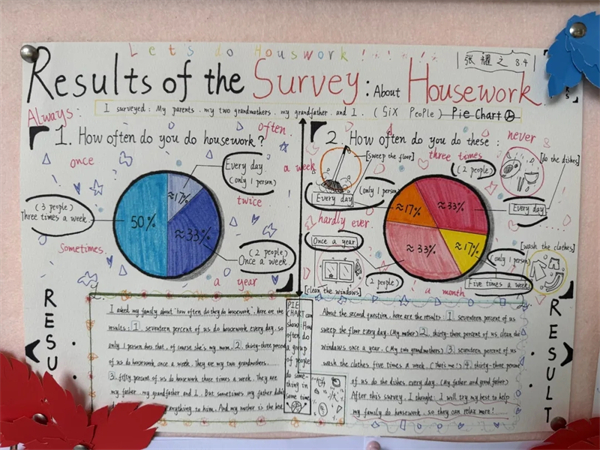 Let's do Houswork!
张 之 8.4
Results of the Survey: About Housework
I surveyed: My parents, my two grandmothers, my grandfather and I. (Six People) Pie Chart
Always:
1. How often do you do housework?
often.
once
Every day
(only 1 person)
a week
twice
(3 people)
Three times a week
50%
≈17%
≈33%
(2 people)
Once a week
sometimes.
a year
2. How often do you do these:
never
[sweep the floor]
three times
[do the dishes]
(only 1 person)
Every day
(2 people)
Every day
≈17%
≈33%
≈33%
≈17%
hardly ever.
Once a year
[clean the windows]
(2 people)
[wash the clothes]
(only 1 person)
Five times a week
a month
RESU
I asked my family about "how often do they do housework", here are the
results: 1. seventeen percent of us do housework every day, so
only 1 person does that, of course she's my mom. 2. thirty-three percent
of us do housework once a week. They are my two grandmothers.
3. fifty percent of us do housework three times a week. They are
my father, my grandfather and I. But sometimes my father
everything to him. And my mother is the best
PIE
CHART can
show How
often do
a group
of people
do some-
thing in
some
time
About the second question, here are the results: 1. seventeen percent of us
sweep the floor every day. (My mother) 2. thirty-three percent of us clean the
windows once a year. (My two grandmothers) 3. seventeen percent of us
wash the clothes five times a week. 4. thirty-three percent
of us do the dishes every day. (My father and grandfather)
After this survey, I thought: I will try my best to help
my family do housework, so they can relax more!
RESULT